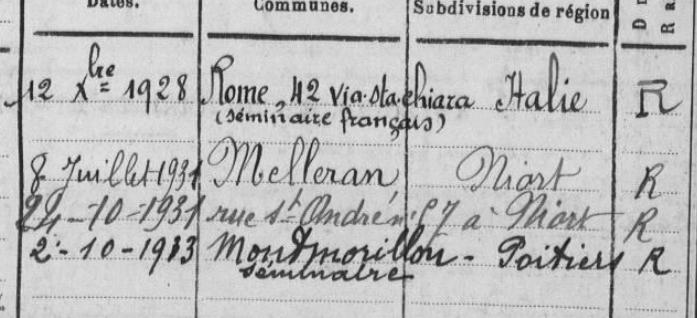 Dates. Communes. Subdivisions de région D R
12 Xbre 1928 Rome, 42 via sta chiara Italie R
(séminaire français)
8 Juillet 1931 Melleran Niort R
24-10-1931 rue St André n: 7 à Niort R
2-10-1933 Montmorillon - Poitiers R
séminaire